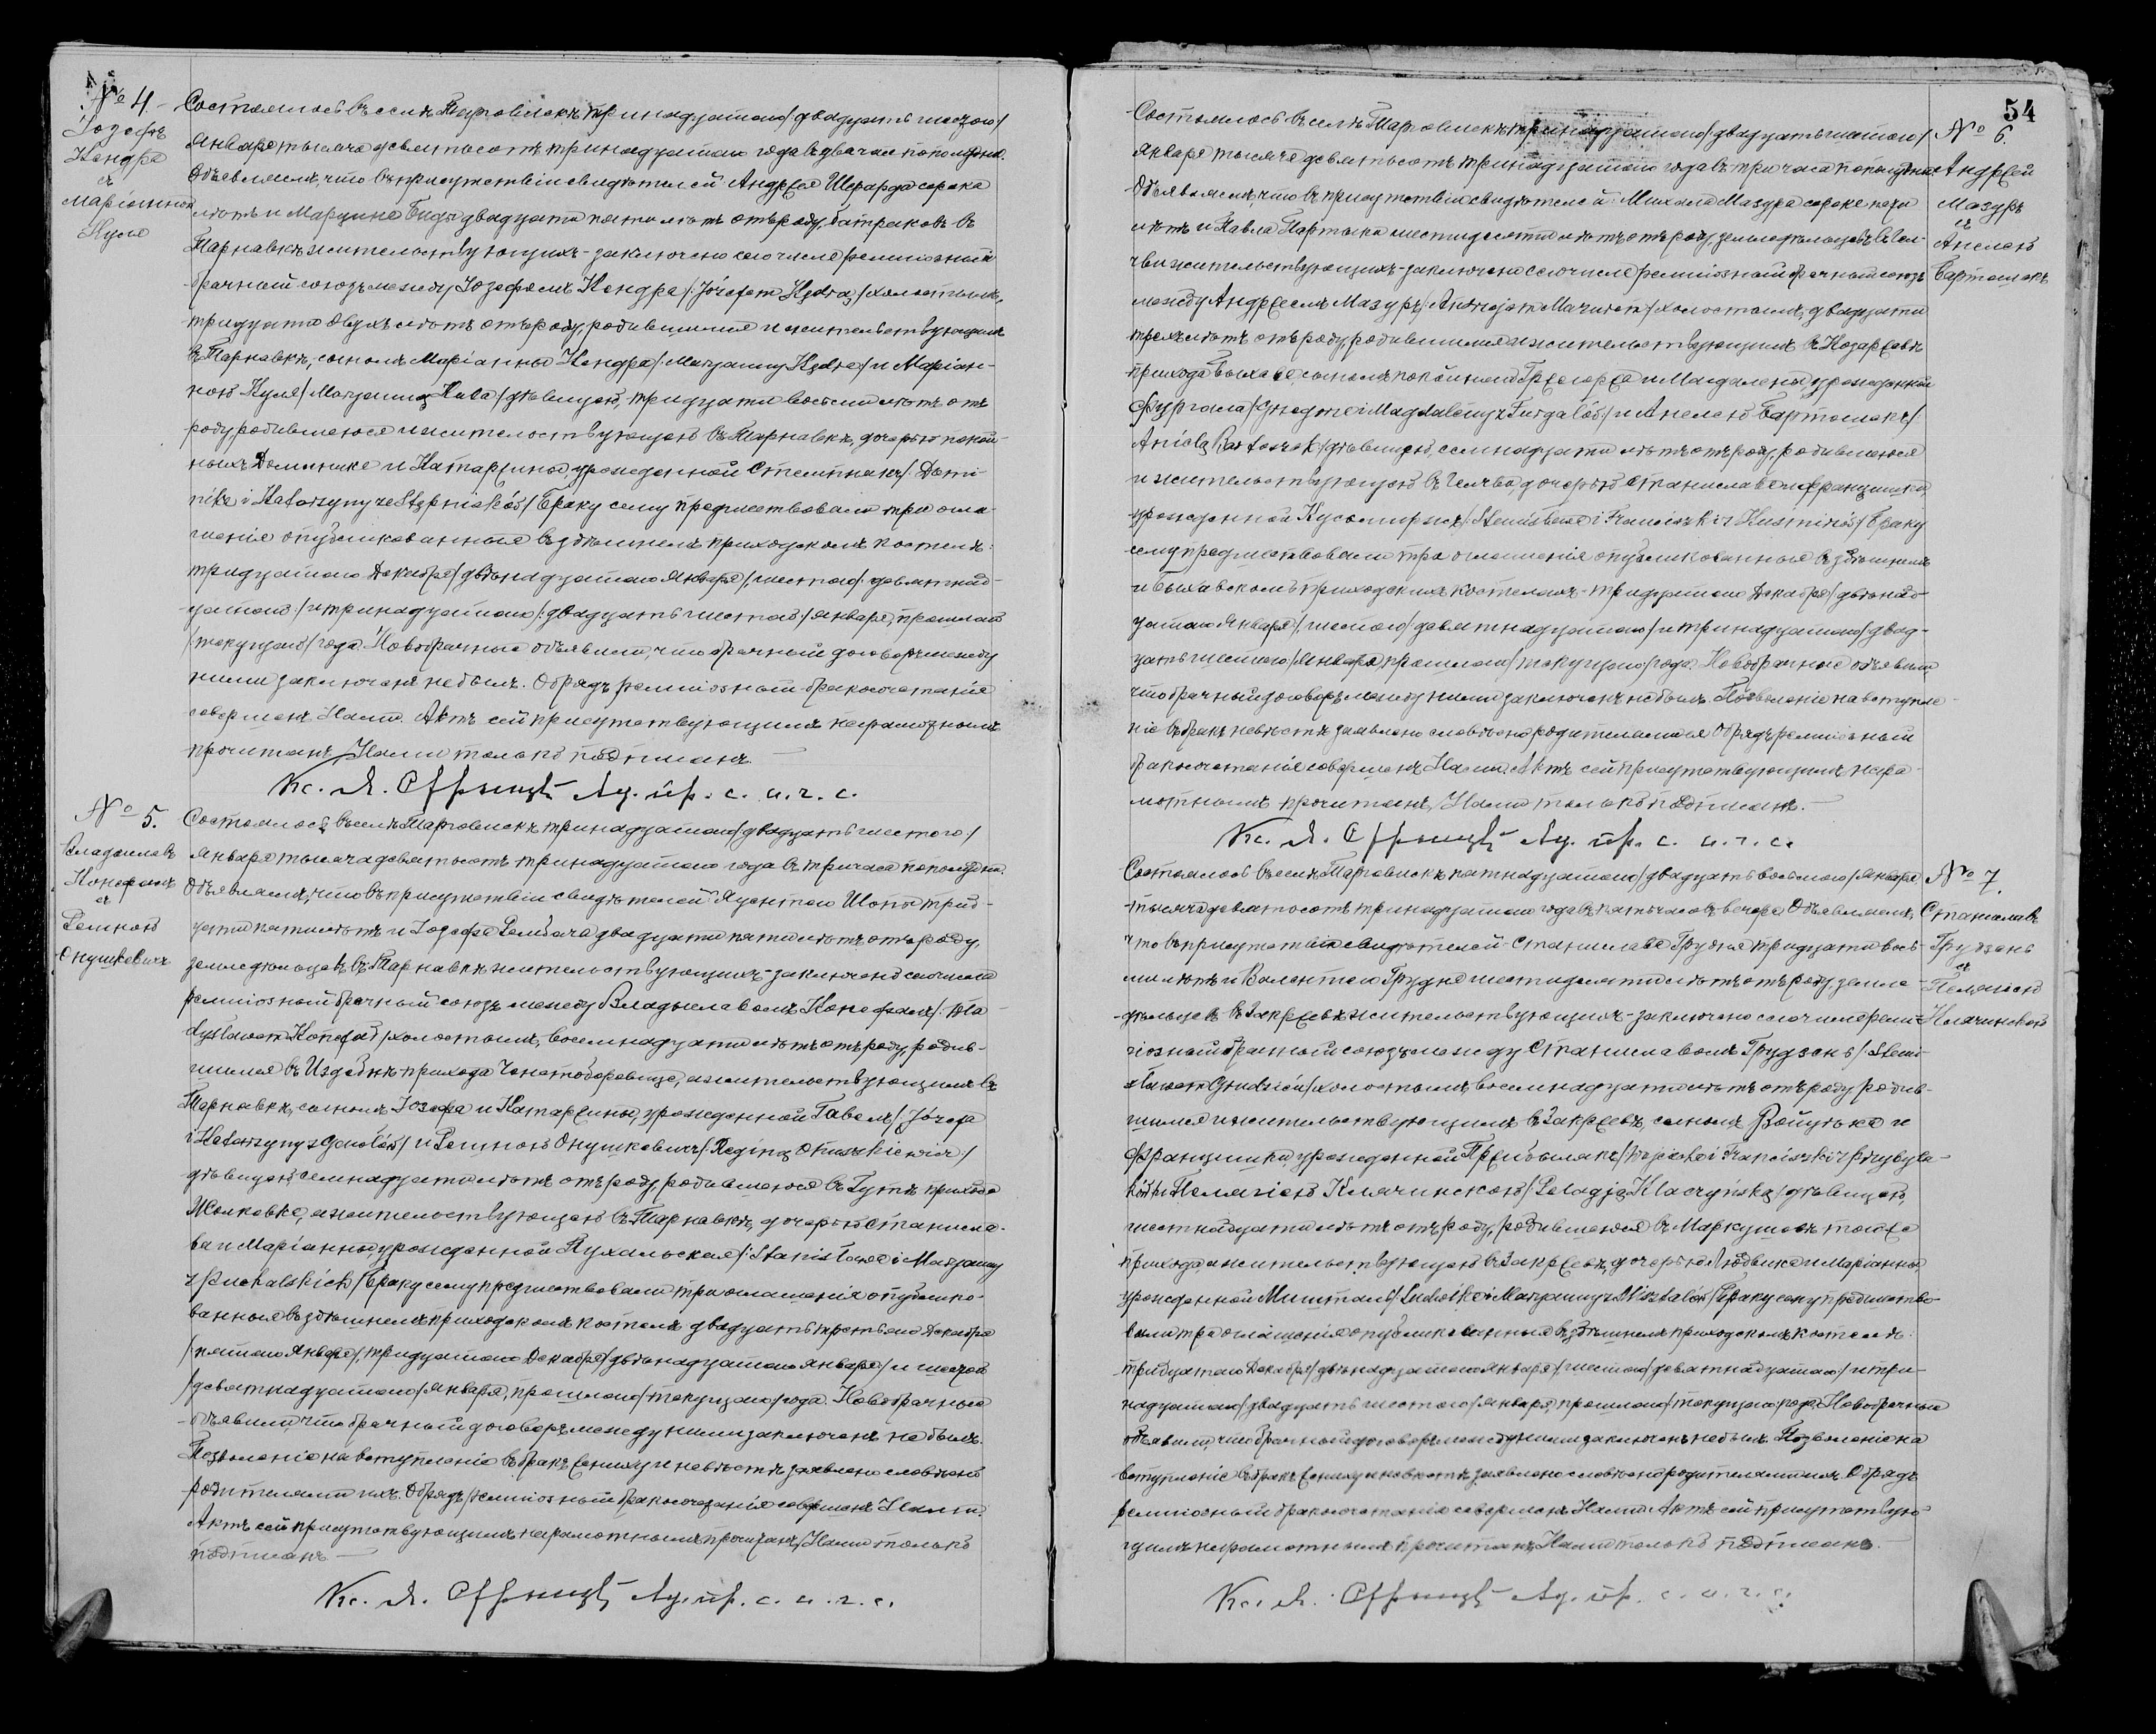 № 4.
Іозефъ
Кендра
съ
Маріанною
Куля
Состоялось въ селѣ Тарговискѣ тринадцатаго /двадцать шестого/
Января тысяча девятьсотъ тринадцатаго года въ два часа пополудни.
Объявляемъ, что въ присутствіи свидѣтелей Андрея Шефарда сорока
лѣтъ и Марцина Биды двадцати пяти лѣтъ отъ роду, батраковъ въ
Тарнавкѣ жительствующихъ - заключено сего числа религіозный
брачный союзъ между Іозефомъ Кендра /:Józefem Kędrą/ холостымъ,
тридцати двухъ лѣтъ отъ роду, родившимся и жительствующимъ
въ Тарнавкѣ, сыномъ Маріанны Кендра /Maryanny Kędra/ и Маріан-
ною Куля /Maryanną Kula/ дѣвицею, тридцати восьми лѣтъ отъ
роду родившеюся и жительствующею въ Тарнавкѣ, дочерью покой-
ныхъ Доминика и Катаржины урожденной Стемпнякъ /Domi-
nika i Katarzyny ze Stępniaków/ Браку сему предшествовали три огла-
шенія опубликованныя въ здѣшнемъ приходскомъ костелѣ:
тридцатаго Декабря /двѣнадцатаго Января/, шестаго /девятнад-
цатаго/ и тринадцатаго /двадцать шестаго/ Января, прошлаго
/текущаго/ года. Новобрачные объявили, что брачный договоръ между
ними заключенъ не былъ. Обрядъ религіозный бракосочетанія
совершенъ Нами. Актъ сей присутствующимъ неграмотнымъ
прочитанъ, Нами только подписанъ. —
Кс. А. Ад. пр. с. а. г. с.
№ 5.
Владыславъ
Конефалъ
съ
Региною
Онушкевичъ
Состоялось въ селѣ Тарговискѣ тринадцатаго /двадцать шестого/
Января тысяча девятьсотъ тринадцатаго года въ три часа пополудни.
Объявляемъ, что въ присутствіи свидѣтелей Аугентаго Шопы трид-
цати пяти лѣтъ и Іозефа двадцати пяти лѣтъ отъ роду,
земледѣльцевъ въ Тарнавкѣ жительствующихъ - заключено сего числа
религіозный брачный союзъ между Владыславомъ Конефалъ /:Wła-
dysławem Konefał/ холостымъ, восемнадцати лѣтъ отъ роду, родив-
шимся въ Издебнѣ прихода Ченстоборовице, а жительствующимъ въ
Тарнавкѣ, сыномъ Іозефа и Катаржины, урожденной Гавелъ /Józefa
i Katarzyny z Gawełów/ и Региною Онушкевичъ /Reginą Onuszkiewicz/
дѣвицею семнадцати лѣтъ отъ роду, родившеюся въ Гутѣ прихода
Жолкевка, а жительствующею въ Тарнавкѣ, дочерью Станисла-
ва и Маріанны, урожденной Пухальская /:Stanisława i Maryanny
z Puchalskich/ Браку сему предшествовали три оглашенія опублико-
ванныя въ здѣшнемъ приходскомъ костелѣ двадцать третьяго Декабря
/пятаго Января/, тридцатаго Декабря /двѣнадцатаго Января/ и шестаго
/девятнадцатаго/ Января, прошлаго /текущаго/ года. Новобрачные
объявили, что брачный договоръ между ними заключенъ не былъ.
Позволеніе на вступленіе въ бракъ жениху и невѣстѣ заявлено словесно
родителями ихъ. Обрядъ религіозный бракосочетанія совершенъ Нами.
Актъ сей присутствующимъ неграмотнымъ прочитанъ, Нами только
подписанъ —
Кс. А. Ад. пр. с. а. г. с.
54
№ 6.
Андрей
Мазуръ
съ
Анелею
Бартошекъ
Состоялось въ селѣ Тарговискѣ тринадцатаго /двадцать шестаго/
Января тысяча девятьсотъ тринадцатаго года въ три часа пополудни.
Объявляемъ, что въ присутствіи свидѣтелей Михала Мазура сорока пяти
лѣтъ и Павла Партыки шестидесяти лѣтъ отъ роду земледѣльцевъ въ
жительствующихъ - заключено сего числа религіозный брачный союзъ
между Андреемъ Мазуръ /:Andrzejem Mazurem/ холостымъ, двадцати
трехъ лѣтъ отъ роду, родившимся и жительствующимъ въ Козаревѣ
прихода Быхава, сыномъ покойнаго Гржегоржа и Магдалены урожденной
Фургала /Grzegorza i Magdaleny z Furgałów/ и Анелею Бартошекъ /:
Anielą Bartoszek/ дѣвицею, семнадцати лѣтъ отъ роду, родившеюся
и жительствующею въ дочерью Станислава и Францишки,
урожденной Кусьмиржъ /:Stanisława i Franciszki z Kuśmirzów/ Браку
сему предшествовали три оглашенія опубликованныя въ здѣшнемъ
и Быхавскомъ приходскихъ костелахъ - тридцатаго Декабря /двѣнад-
цатаго Января/, шестаго /девятнадцатаго/ и тринадцатаго /двад-
цать шестаго/ Января, прошлаго /текущаго/ года. Новобрачные объявили,
что брачный договоръ между ними заключенъ не былъ. Позволеніе на вступле-
ніе въ бракъ невѣстѣ заявлено словесно родителями ея. Обрядъ религіозный
бракосочетанія совершенъ Нами. Актъ сей присутствующимъ негра-
мотнымъ прочитанъ, Нами только подписанъ. —
Кс. А. Ад. пр. с. а. г. с.
№ 7.
Станиславъ
Грудзень
съ
Пелагіею
Клячинскою
Состоялось въ селѣ Тарговискѣ пятнадцатаго /двадцать восьмаго/ Января
тысяча девятьсотъ тринадцатаго года въ пять часовъ вечера. Объявляемъ,
что въ присутствіи свидѣтелей Станислава Грудня тридцати вось-
ми лѣтъ и Валентаго Грудня шестидесяти лѣтъ отъ роду, земле-
дѣльцевъ въ Закржевѣ жительствующихъ - заключено сего числа рели-
гіозный брачный союзъ между Станиславомъ Грудзень /:Stani-
sławem Grudzień/ холостымъ, восемнадцати лѣтъ отъ роду родив-
шимся и жительствующимъ въ Закржевѣ, сыномъ Войцѣха и
Францишки, урожденной Пржибылякъ /Wojciecha i Franciszki z Przybyla-
ków/ и Пелагіею Клячинскою /Pelagją Klaczyńską/ дѣвицею,
шестнадцати лѣтъ отъ роду, родившеюся въ Маркушовѣ того же
прихода а жительствующею въ Закржевѣ, дочерью Людвика и Маріанны,
урожденной Мишталъ /Ludwika i Maryanny z Misztalów/ Браку сему предшество-
вали три оглашенія опубликованныя въ здѣшнемъ приходскомъ костелѣ:
тридцатаго Декабря /двѣнадцатаго Января/, шестаго /девятнадцатаго/ и три-
надцатаго /двадцать шестого/ Января, прошлаго /текущаго/ года. Новобрачные
объявили, что брачный договоръ между ними заключенъ не былъ. Позволеніе на
вступленіе въ бракъ жениху и невѣстѣ заявлено словесно родителями ихъ. Обрядъ
религіозный бракосочетанія совершенъ Нами. Актъ сей присутствую-
щимъ неграмотнымъ прочитанъ, Нами только подписанъ. —
Кс. А. Ад. пр. с. а. г. с.